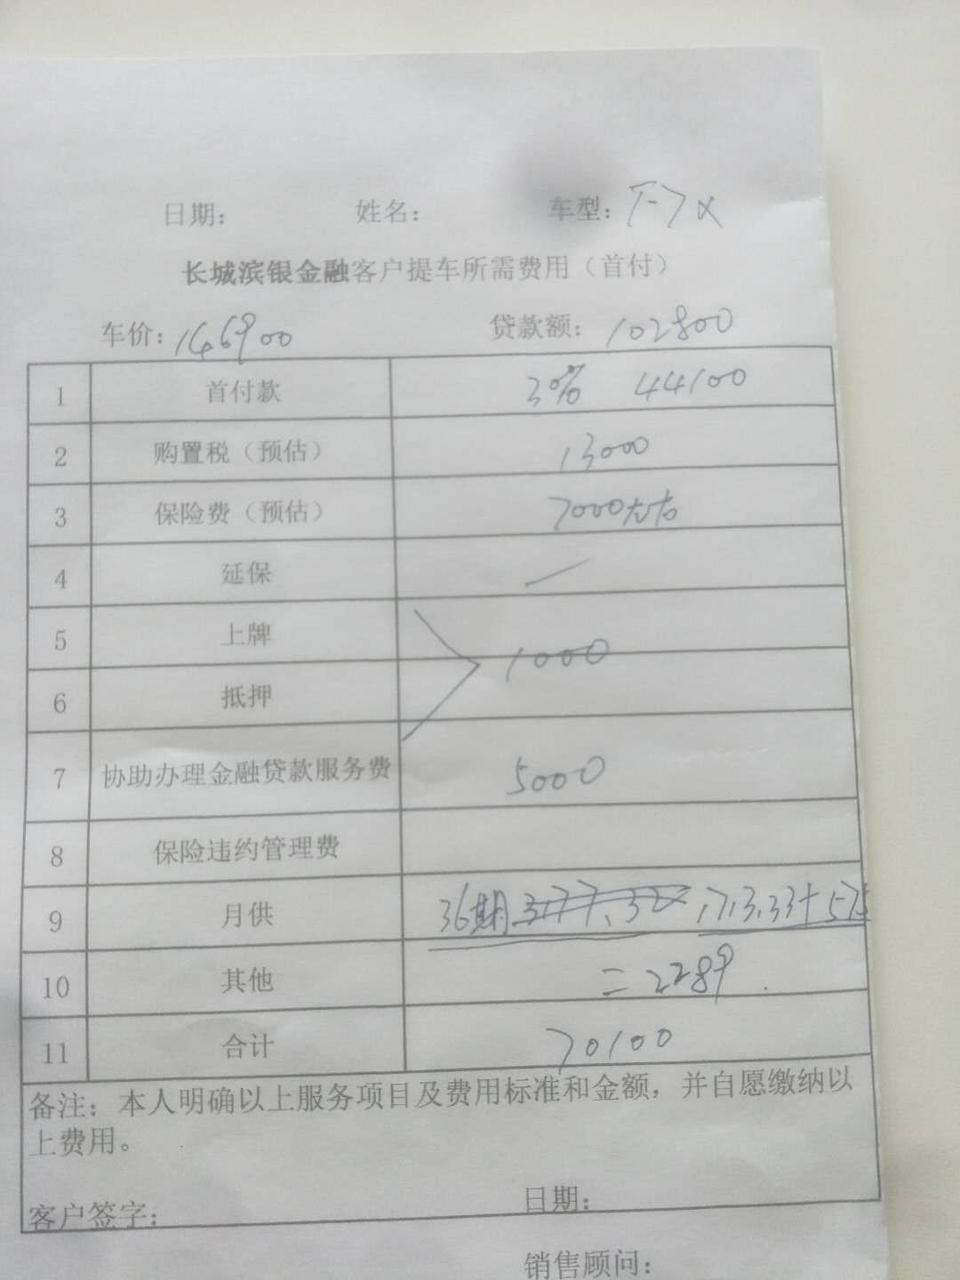 日期： 姓名： 车型：F-7x
长城滨银金融客户提车所需费用（首付）
车价：146900 贷款额：102800
1 首付款 30% 44100
2 购置税（预估） 13000
3 保险费（预估） 7000左右
4 延保 —
5 上牌
1000
6 抵押
7 协助办理金融贷款服务费 5000
8 保险违约管理费
9 月供 36期 1713.33+575
10 其他 =2289
11 合计 70100
备注：本人明确以上服务项目及费用标准和金额，并自愿缴纳以
上费用。
客户签字： 日期：
销售顾问：